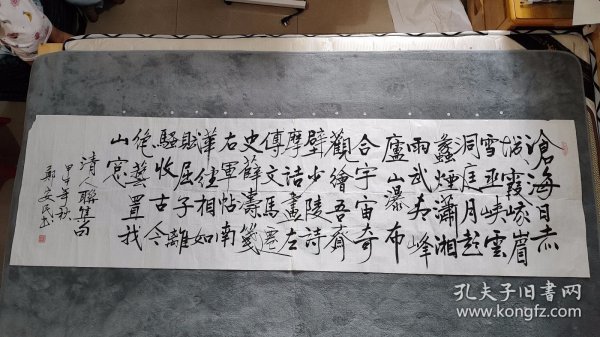 滄海日赤
城霞峨眉
雪巫峽雲
洞庭月彭
蠡煙瀟湘
雨武夷峰
廬山瀑布
合宇宙奇
觀繪吾齋
壁少陵詩
摩詰畫左
傳文馬遷
史薛濤箋
右軍帖南
華經相如
賦屈子離
騷收古今
絕藝置我
山窗
清人聯
年秋
孔夫子旧书网
www.kongfz.com